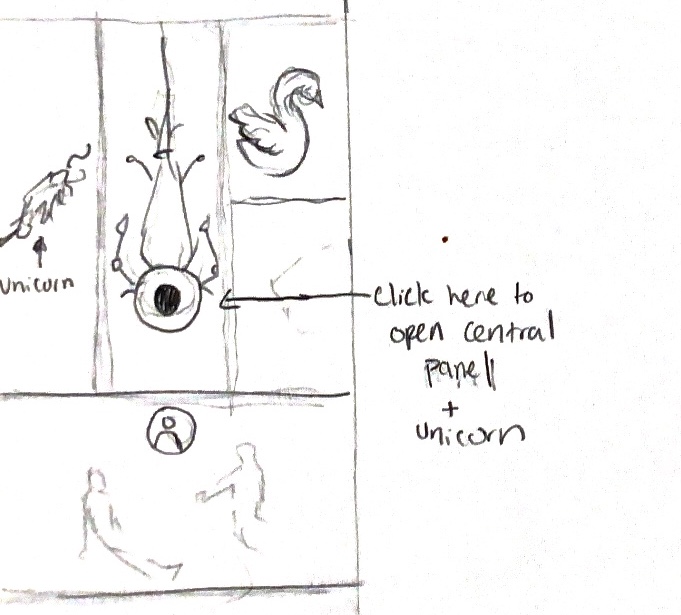 unicorn
click here to
open central
panell
+
unicorn